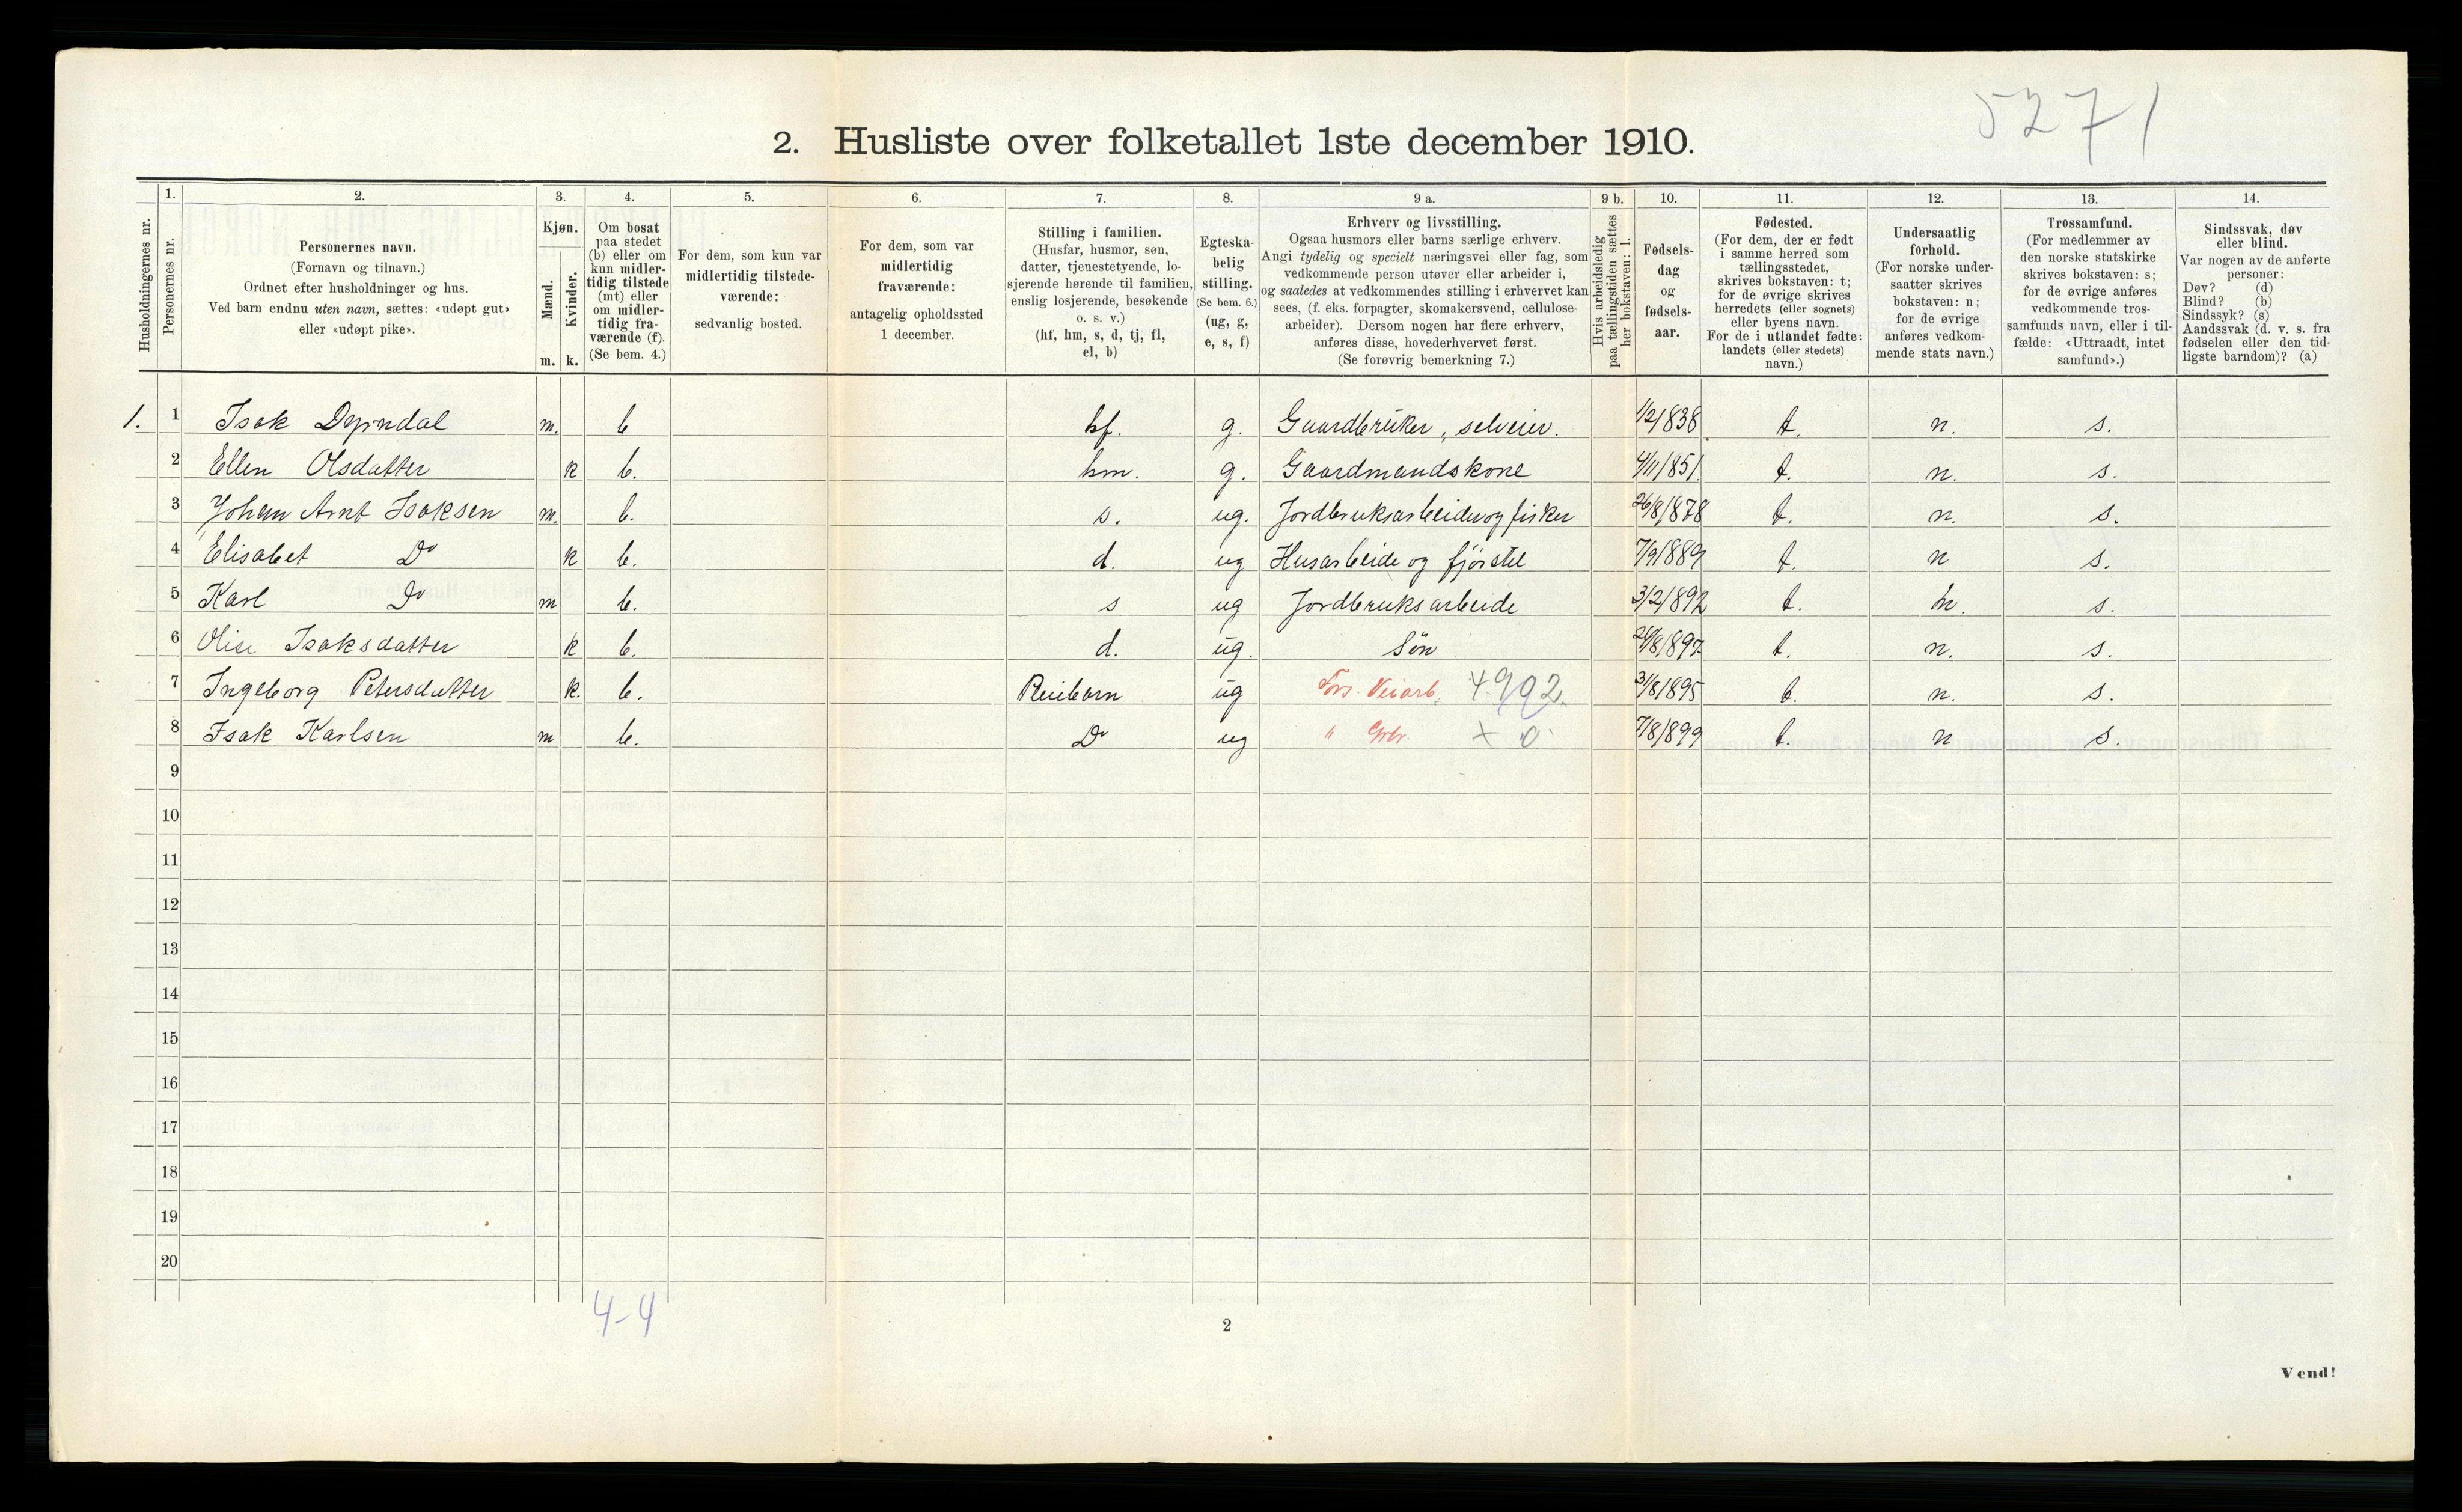 5271
2. Husliste over folketallet 1ste december 1910.
Husholdningernes nr.
1.
Personernes nr.
2.
Personernes navn.
(Fornavn og tilnavn.)
Ordnet efter husholdninger og hus.
Ved barn endnu uten navn, sættes: «udøpt gut»
eller «udøpt pike».
3.
Kjøn.
Mænd.
Kvinder.
m. k.
4.
Om bosat
paa stedet
(b) eller om
kun midler-
tidig tilstede
(mt) eller
om midler-
tidig fra-
værende (f).
(Se bem. 4.)
5.
For dem, som kun var
midlertidig tilstede-
værende:
sedvanlig bosted.
6.
For dem, som var
midlertidig
fraværende:
antagelig opholdssted
1 december.
7.
Stilling i familien.
(Husfar, husmor, søn,
datter, tjenestetyende, lo-
sjerende hørende til familien,
enslig losjerende, besøkende
o. s. v.)
(hf, hm, s, d, tj, fl,
el, b)
8.
Egteska-
belig
stilling.
(Se bem. 6.)
(ug, g,
e, s, f)
9 a.
Erhverv og livsstilling.
Ogsaa husmors eller barns særlige erhverv.
Angi tydelig og specielt næringsvei eller fag, som
vedkommende person utøver eller arbeider i,
og saaledes at vedkommendes stilling i erhvervet kan
sees, (f. eks. forpagter, skomakersvend, cellulose-
arbeider). Dersom nogen har flere erhverv,
anføres disse, hovederhvervet først.
(Se forøvrig bemerkning 7.)
9 b.
Hvis arbeidsledig
paa tællingstiden sættes
her bokstaven: l.
10.
Fødsels-
dag
og
fødsels-
aar.
11.
Fødested.
(For dem, der er født
i samme herred som
tællingsstedet,
skrives bokstaven: t;
for de øvrige skrives
herredets (eller sognets)
eller byens navn.
For de i utlandet fødte:
landets (eller stedets)
navn.)
12.
Undersaatlig
forhold.
(For norske under-
saatter skrives
bokstaven: n;
for de øvrige
anføres vedkom-
mende stats navn.)
13.
Trossamfund.
(For medlemmer av
den norske statskirke
skrives bokstaven: s;
for de øvrige anføres
vedkommende tros-
samfunds navn, eller i til-
fælde: «Uttraadt, intet
samfund».)
14.
Sindssvak, døv
eller blind.
Var nogen av de anførte
personer:
Døv? (d)
Blind? (b)
Sindssyk? (s)
Aandssvak (d. v. s. fra
fødselen eller den tid-
ligste barndom)? (a)
1. 1 Isak Dyrndal m. b hf. g. Gaardbruker, selveier. 1/2/838 t. n. s.
2 Ellen Olsdatter k b. hm. g. Gaardmandskone 4/11/851. t. n. s.
3 Johan Arnt Isaksen m. b. s. ug. Jordbruksarbeider og fisker 26/8/878 t. n. s.
4 Elisabet Do k b. d. ug Husarbeide og fjøsstel 7/9/889 t. n s.
5 Karl Do m b. s ug Jordbruksarbeide 3/2/892 t. n. s.
6 Olise Isaksdatter k b. d. ug. Søn /8/897 t. n. s.
7 Ingeborg Petersdatter k. b. Pleiebarn ug Fors. Veiarb. 4992. 31/8/895 t. n. s.
8 Isak Karlsen m b. Do ug " Grbr. + 0 7/8/899 t. n s.
9
10
11
12
13
14
15
16
17
18
19
20
4-4
2
Vend!